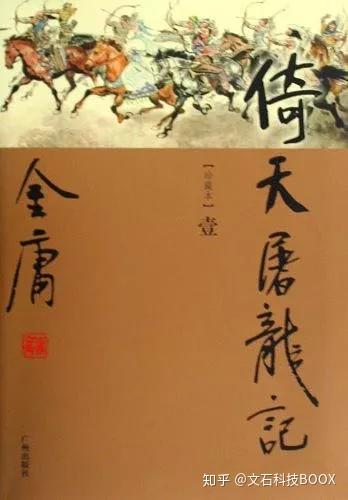 倚天屠龍記
【珍藏本】
壹
金庸
广州出版社
知乎 @文石科技BOOX